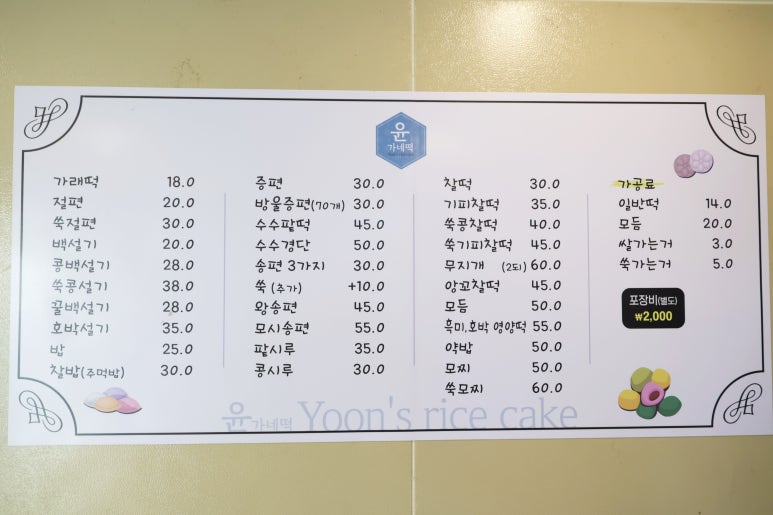 윤
가네떡
가래떡 18.0
절편 20.0
쑥절편 30.0
백설기 20.0
콩백설기 28.0
쑥콩설기 38.0
꿀백설기 28.0
호박설기 35.0
밥 25.0
찰밥(주먹밥) 30.0
증편 30.0
방울증편(70개) 30.0
수수팥떡 45.0
수수경단 50.0
송편 3가지 30.0
쑥 (추가) +10.0
왕송편 45.0
모시송편 55.0
팥시루 35.0
콩시루 30.0
찰떡 30.0
기피찰떡 35.0
쑥콩찰떡 40.0
쑥기피찰떡 45.0
무지개 (2되) 60.0
앙꼬찰떡 45.0
모듬 50.0
흑미,호박 영양떡 55.0
약밥 50.0
모찌 50.0
쑥모찌 60.0
가공료
일반떡 14.0
모듬 20.0
쌀가는거 3.0
쑥가는거 5.0
포장비(별도)
₩2,000
윤가네떡 Yoon's rice cake